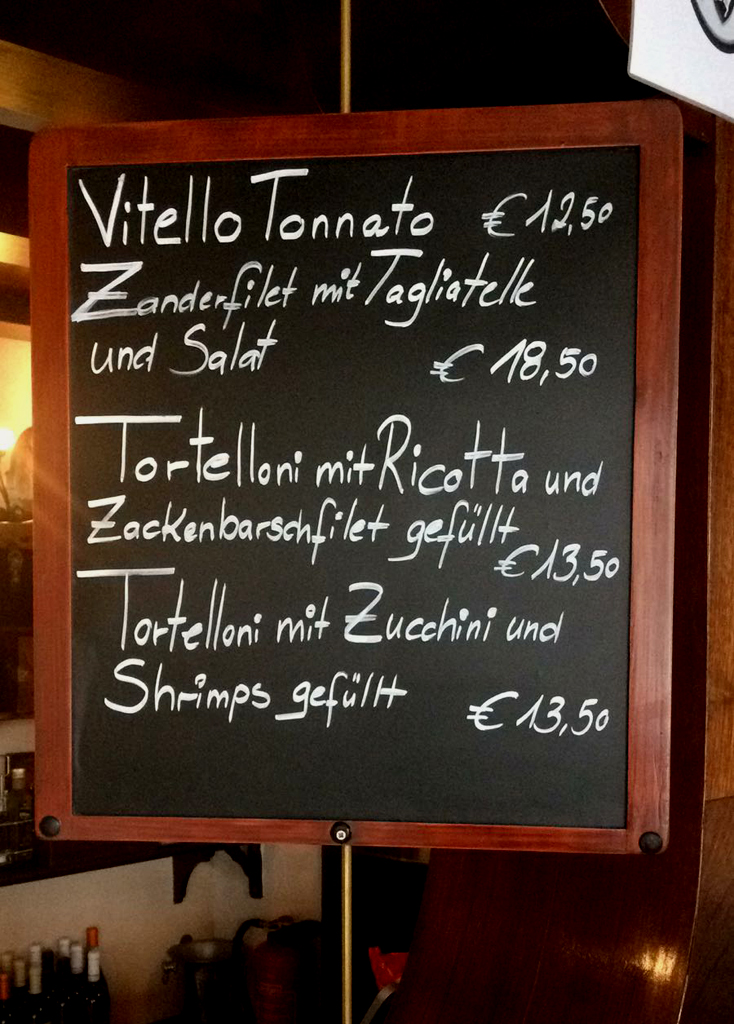 Vitello Tonnato € 12,50
Zanderfilet mit Tagliatelle
und Salat € 18,50
Tortelloni mit Ricotta und
Zackenbarschfilet gefüllt
€ 13,50
Tortelloni mit Zucchini und
Shrimps gefüllt € 13,50